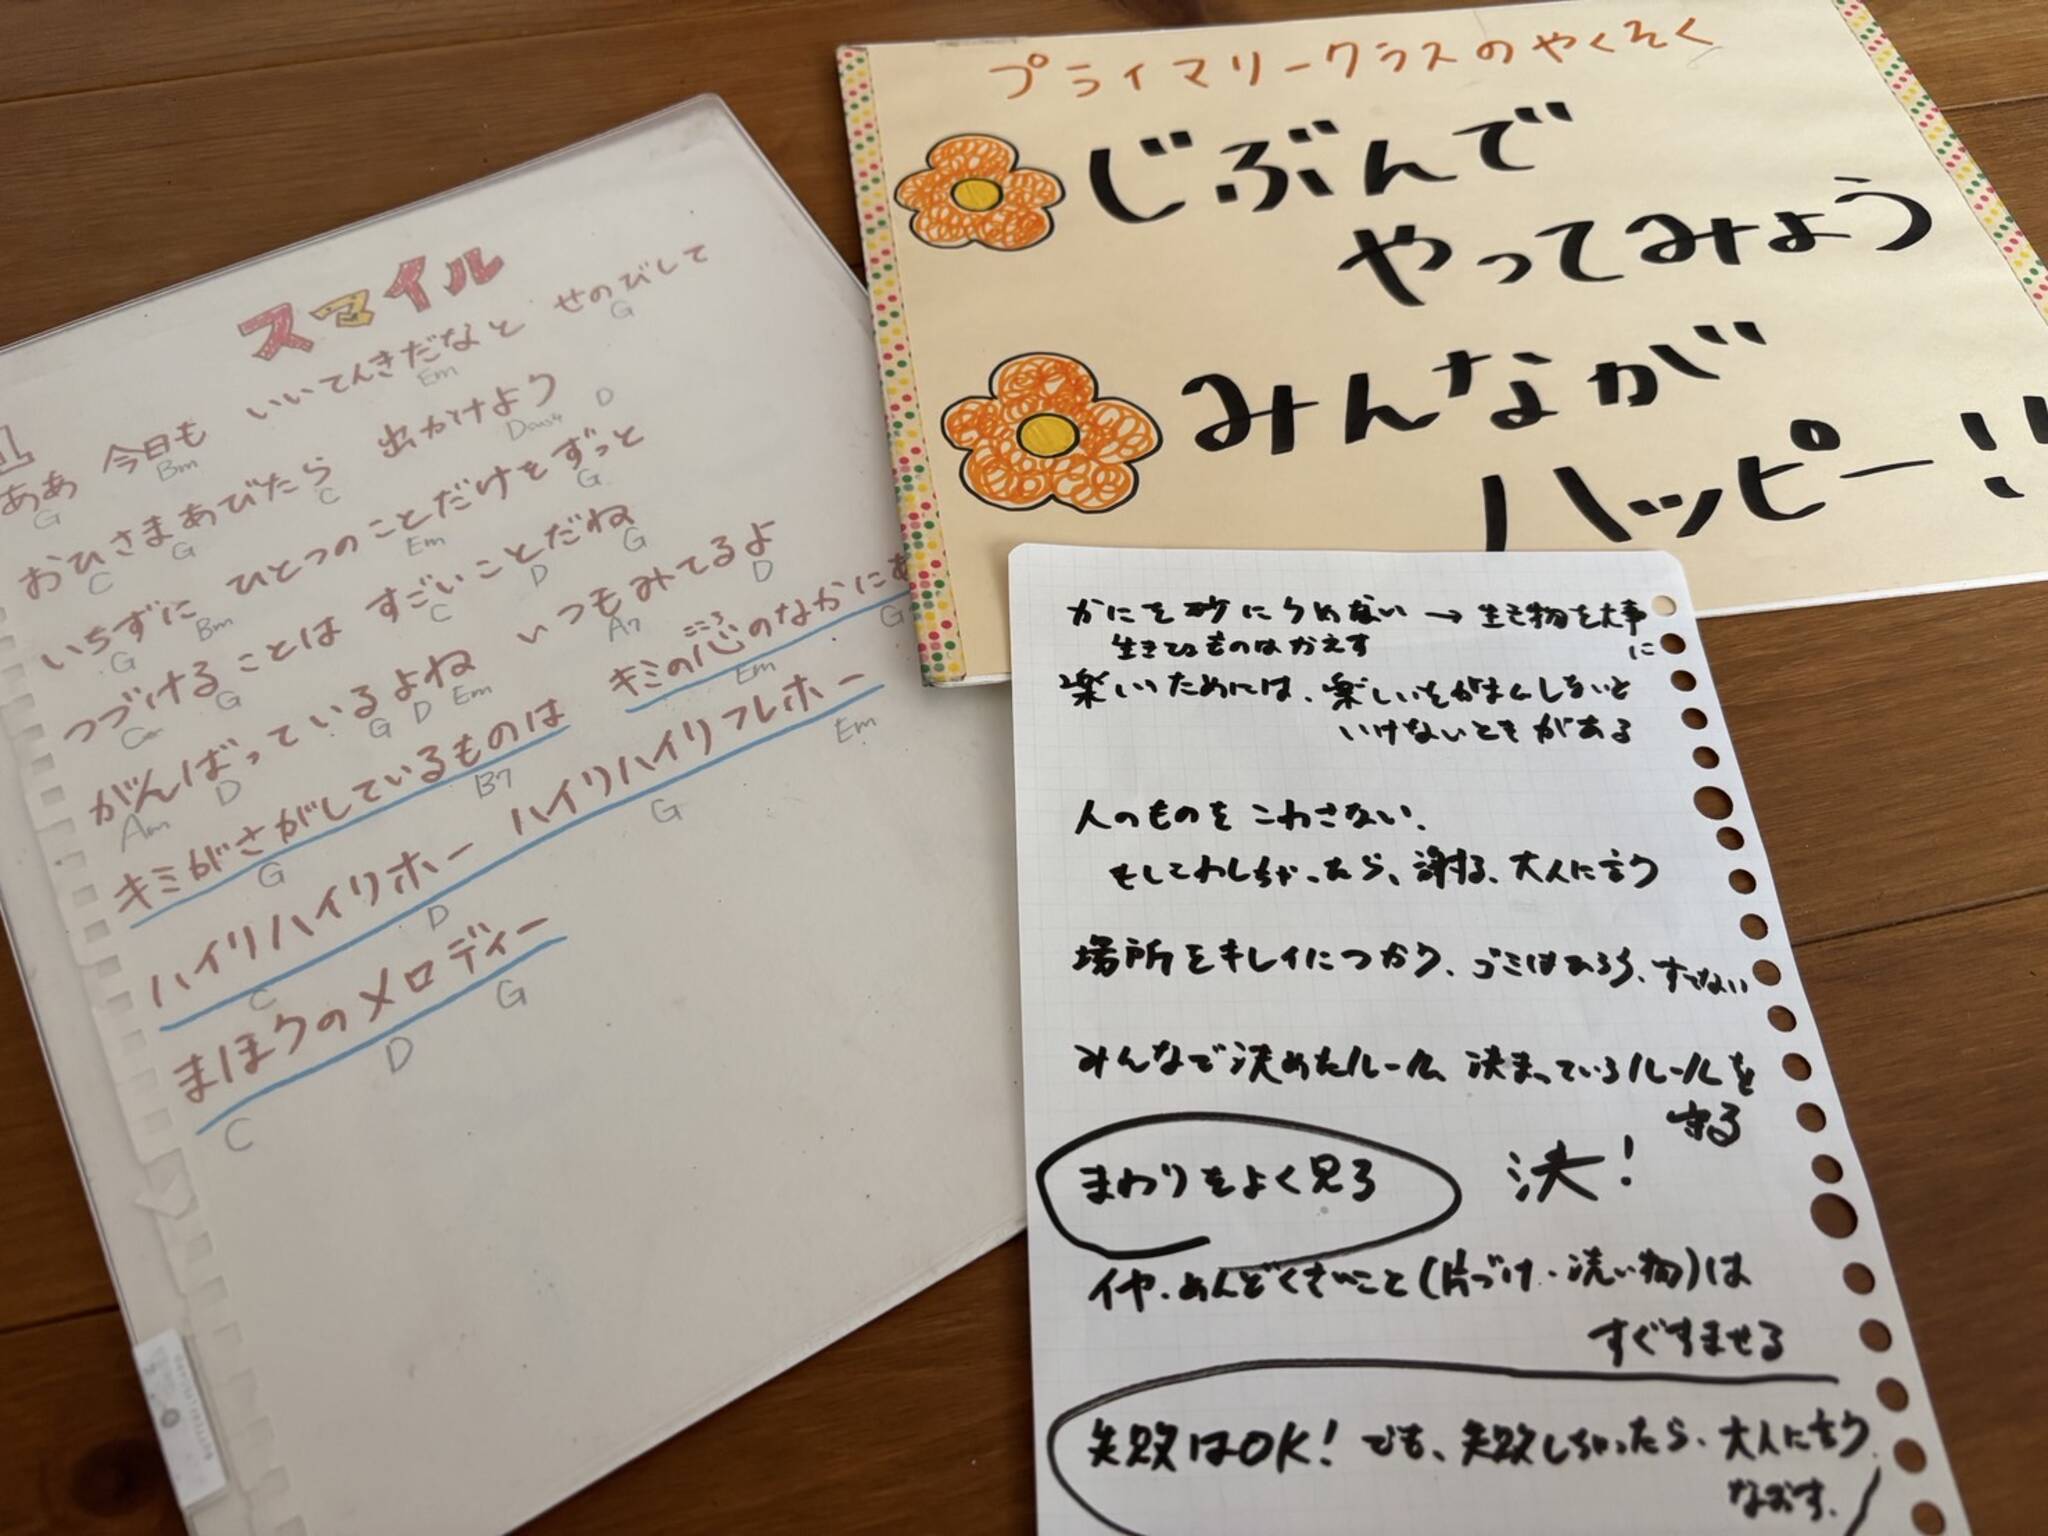 スマイル
1
ああ 今日も いいてんきだなと せのびして
G Bm Em G
おひさまあびたら 出かけよう
C G C Dsus4 D
いちずに ひとつのことだけをずっと
G Bm Em G
つづけることは すごいことだね
G C D G
がんばっているよね いつもみてるよ
Am D G D Em A7 D
キミがさがしているものは キミの心のなかに
こころ
G B7 Em G
ハイリハイリホー ハイリハイリフレホー
C D G Em
まほうのメロディー
C D G
プライマリークラスのやくそく
じぶんで
やってみよう
みんなが
ハッピー!!
かにを砂にうめない → 生き物を大事
に
生きてるものはかえす
楽しいためには、楽しいをがまんしないと
いけないときがある
人のものをこわさない、
もしこわしちゃったら、謝る、大人に言う
場所をキレイにつかう、ゴミはひろう、すてない
みんなで決めたルール、決まっているルールを
守る
まわりをよく見る
決!
イヤ・めんどくさいこと(片づけ・洗い物)は
すぐすませる
失敗はOK! でも、失敗しちゃったら、大人に言う
なおす。